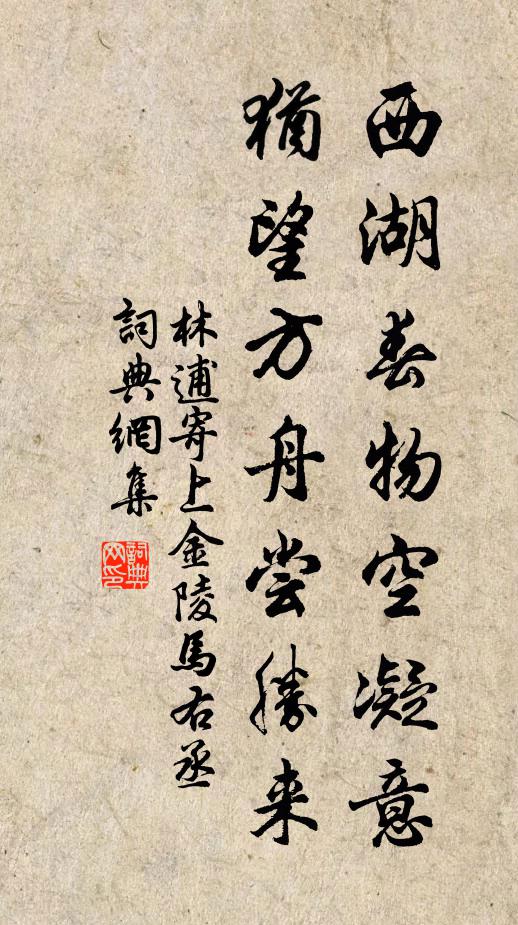 西湖春物空凝意
猶望方舟尝勝来
林逋寄上金陵馬右丞
詞典網集
詞典
网印